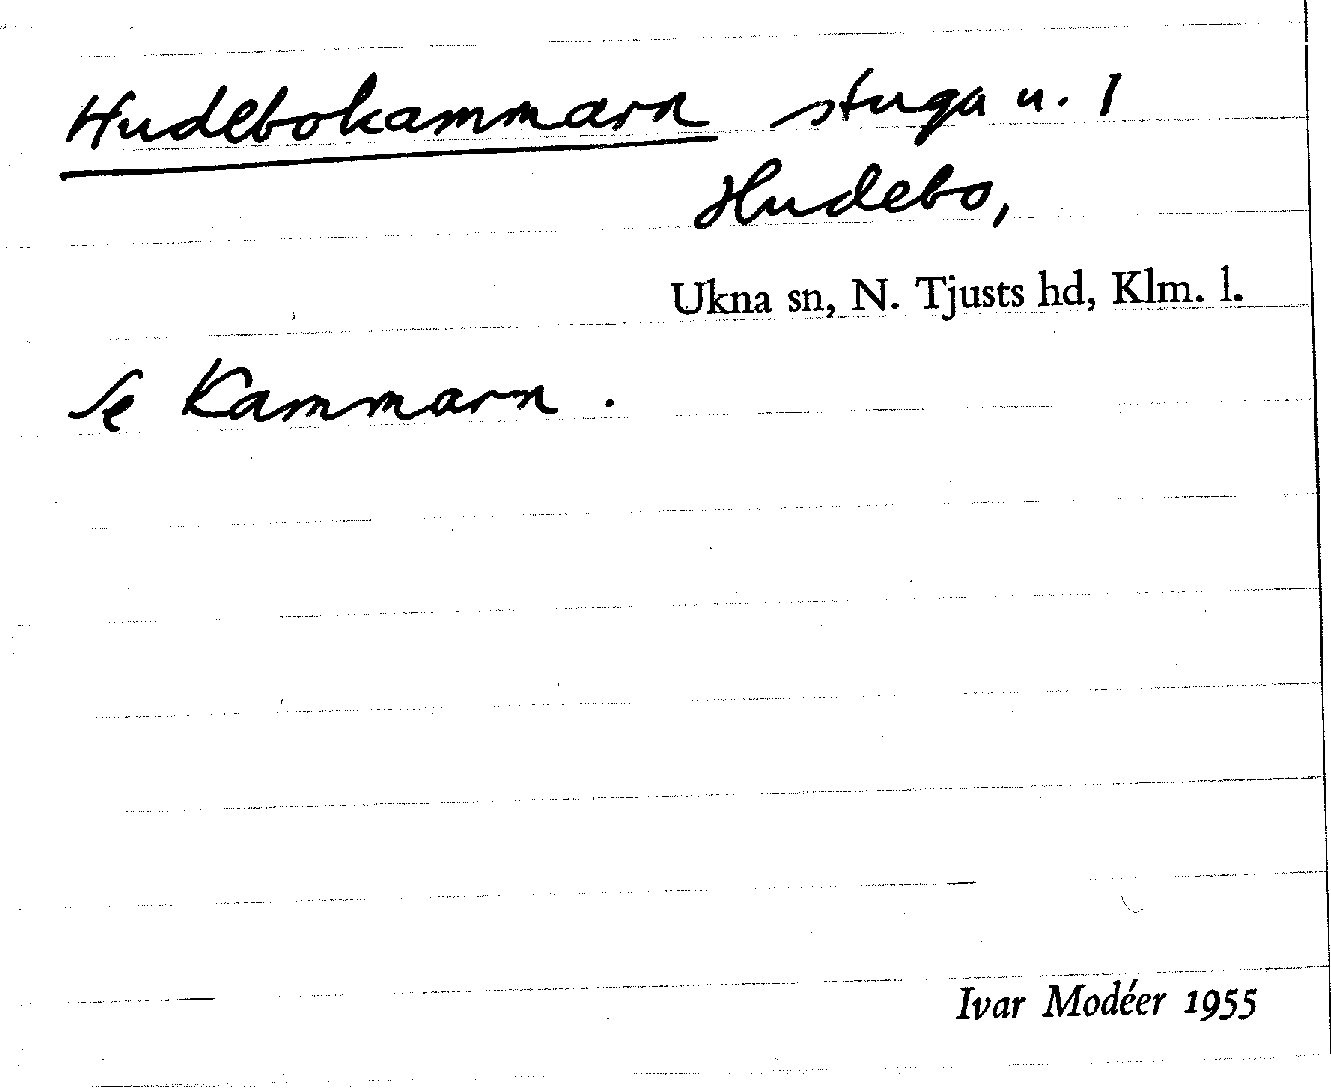 Hudebokammarn stuga u. 1
Hudebo,
Ukna sn, N. Tjusts hd, Klm. l.
Se Kammarn.
Ivar Modéer 1955